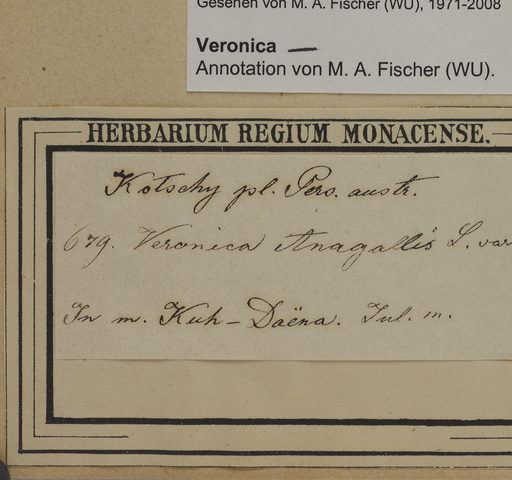 Gesehen von M. A. Fischer (WU), 1971-2008
Veronica —
Annotation von M. A. Fischer (WU).
HERBARIUM REGIUM MONACENSE.
Kotschy pl. Pers. austr.
679. Veronica Anagallis L. var
In m. Kuh-Daëna. Jul. m.